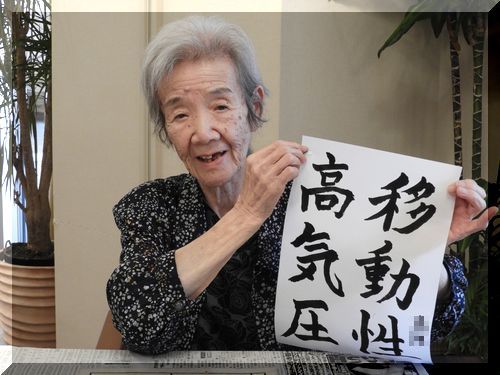 移動性
高気圧